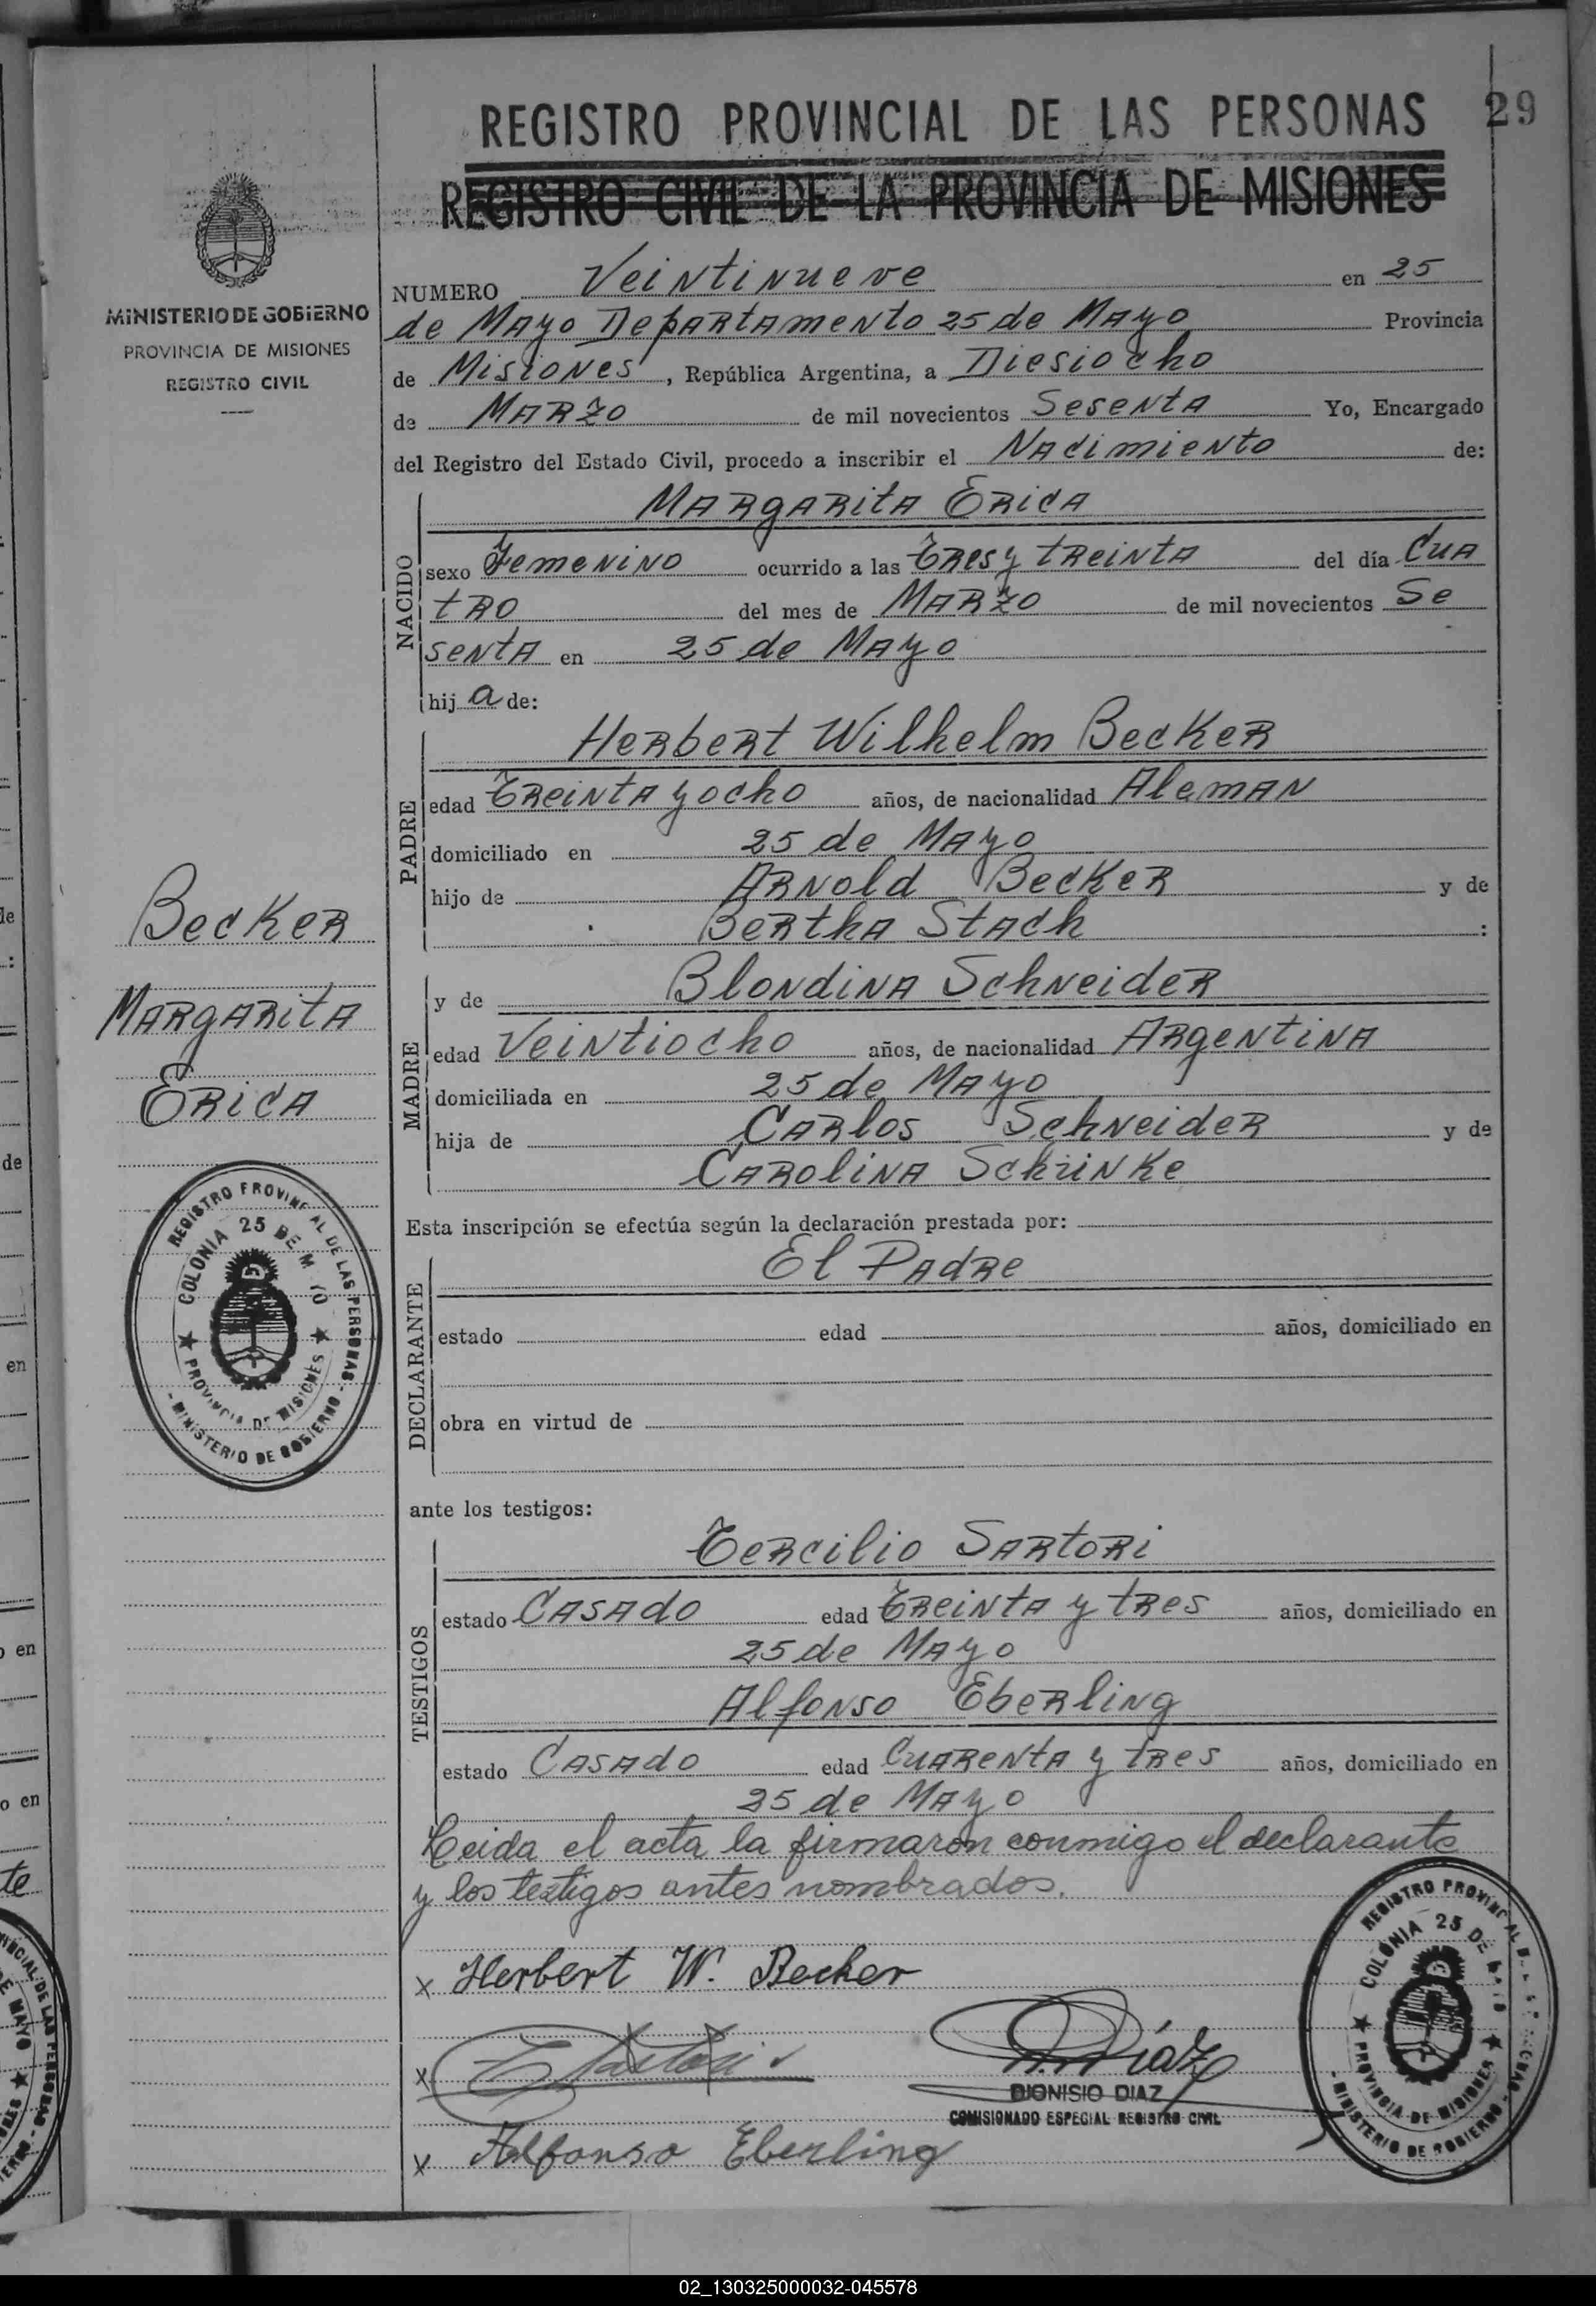 REGISTRO PROVINCIAL DE LAS PERSONAS 29
REGISTRO CIVIL DE LA PROVINCIA DE MISIONES
MINISTERIO DE GOBIERNO
PROVINCIA DE MISIONES
REGISTRO CIVIL
NUMERO Veintinueve en 25
de Mayo Departamento 25 de Mayo Provincia
de Misiones, República Argentina, a Diesiocho
de Marzo de mil novecientos Sesenta Yo, Encargado
del Registro del Estado Civil, procedo a inscribir el Nacimiento de:
NACIDO
Margarita Erica
sexo Femenino ocurrido a las Tres y treinta del día Cua
tro del mes de Marzo de mil novecientos Se
senta en 25 de Mayo
hij a de:
PADRE
Herbert Wilhelm Becker
edad Treinta y ocho años, de nacionalidad Aleman
domiciliado en 25 de Mayo
hijo de Arnold Becker y de
Bertha Stach :
Becker
Margarita
Erica
MADRE
y de Blondina Schneider
edad Veintiocho años, de nacionalidad Argentina
domiciliada en 25 de Mayo
hija de Carlos Schneider y de
Carolina Schünke
Esta inscripción se efectúa según la declaración prestada por:
DECLARANTE
El Padre
estado edad años, domiciliado en
obra en virtud de
REGISTRO PROVINCIAL DE LAS PERSONAS
COLONIA 25 DE MAYO
PROVINCIA DE MISIONES
- MINISTERIO DE GOBIERNO -
ante los testigos:
TESTIGOS
Tercilio Sartori
estado Casado edad Treinta y tres años, domiciliado en
25 de Mayo
Alfonso Eberling
estado Casado edad Cuarenta y tres años, domiciliado en
25 de Mayo
Leida el acta la firmaron conmigo el declarante
y los testigos antes nombrados.
x Herbert W. Becker
x
D. Díaz
DIONISIO DIAZ
COMISIONADO ESPECIAL REGISTRO CIVIL
x Alfonso Eberling
REGISTRO PROVINCIAL DE LAS PERSONAS
COLONIA 25 DE MAYO
PROVINCIA DE MISIONES
- MINISTERIO DE GOBIERNO -
02_130325000032-045578